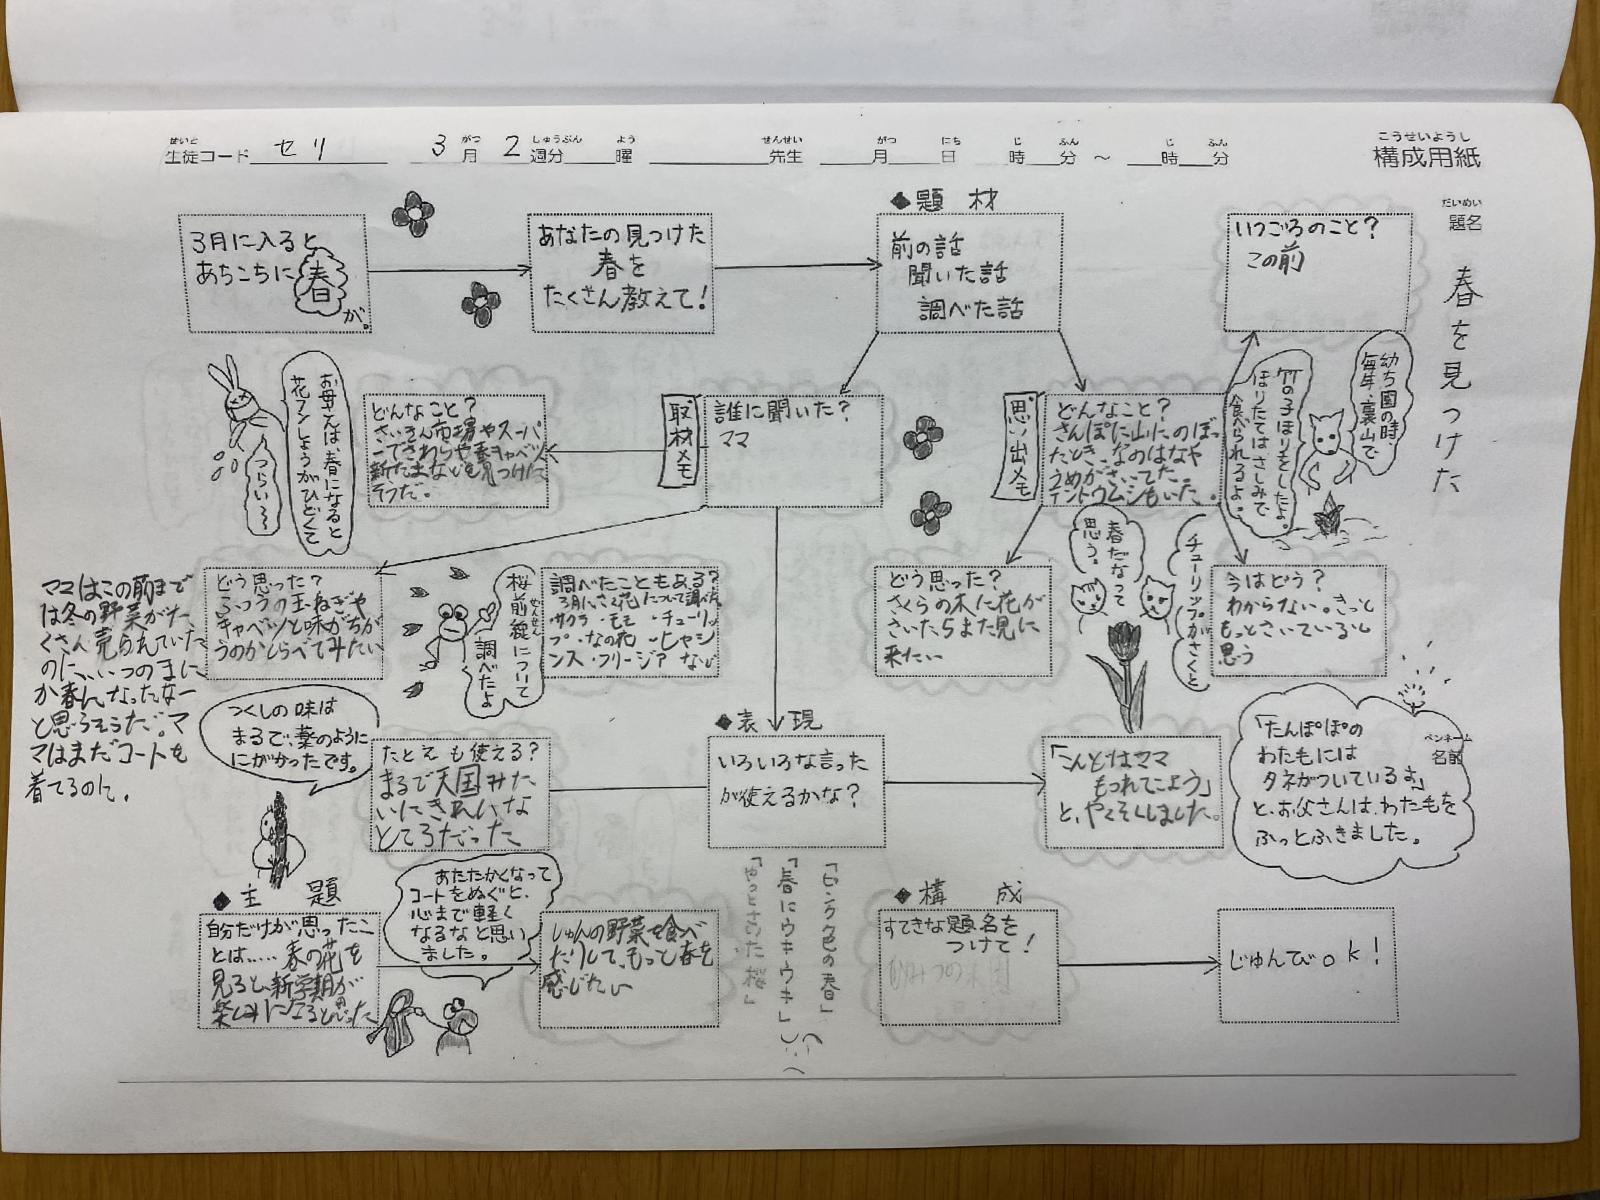 生徒コード セリ 3月 2週分 曜 先生 月 日 時 分 ～ 時 分
せいと がつ しゅうぶん よう せんせい がつ にち じ ふん じ ふん
こうせいようし
構成用紙
だいめい
題名
春を見つけた
ペンネーム
名前
3月に入ると
あちこちに春
が。
あなたの見つけた
春を
たくさん教えて！
◆題材
前の話
聞いた話
調べた話
いつごろのこと？
この前
幼ち園の時、
毎年、裏山で
竹の子ほりをしたよ。
ほりたてはさしみで
食べられるよ。
思い出メモ
どんなこと？
さんぽに山にのぼっ
たとき、なのはなや
うめがさいてた。
テントウムシもいた。
取材メモ
誰に聞いた？
ママ
どんなこと？
さいえん市場やスーパ
ーでさわらや春キャベツ
新たま などを見つけた
そうだ。
お母さんは、春になると
花フンしょうがひどくて
つらい～
どう思った？
ふつうの玉ねぎや
キャベツと味がちが
うのかしらべてみたい
ママはこの前まで
は冬の野菜がた
くさん売られていた
のに、いつのまに
か春になったなー
と思うそうだ。マ
マはまだコートを
着てるのに。
桜前線について
ぜんせん
調べたよ
調べたこともある？
3月にさく花について調べた
・サクラ・モモ・チューリッ
プ・なの花・ヒヤシ
ンス・フリージア など
どう思った？
さくらの木に花が
さいたらまた見に
来たい
チューリップがさくと
春だなって
思う。
今はどう？
わからない。きっと
もっとさいていると
思う
つくしの味は
まるで、薬のように
にがかったです。
たとえも使える？
まるで天国みた
いにきれいな
ところだった
◆表現
いろいろな言った
が使えるかな？
「こんどはママ
もつれてこよう」
と、やくそくしました。
「たんぽぽの
わたもには
タネがついているよ」
と、お父さんは、わた毛を
ふっとふきました。
◆主題
自分だけが思ったこ
とは…… 春の花を
見ると、新学期が
楽しみになると思った
あたたかくなって
コートをぬぐと、
心まで軽く
なるなと思い
ました。
しゅんの野菜を食べ
たりして、もっと春を
感じたい
「ピンク色の春」
「春にウキウキ」
「やっとさいた桜」
◆構成
すてきな題名を
つけて！
じゅんびok！